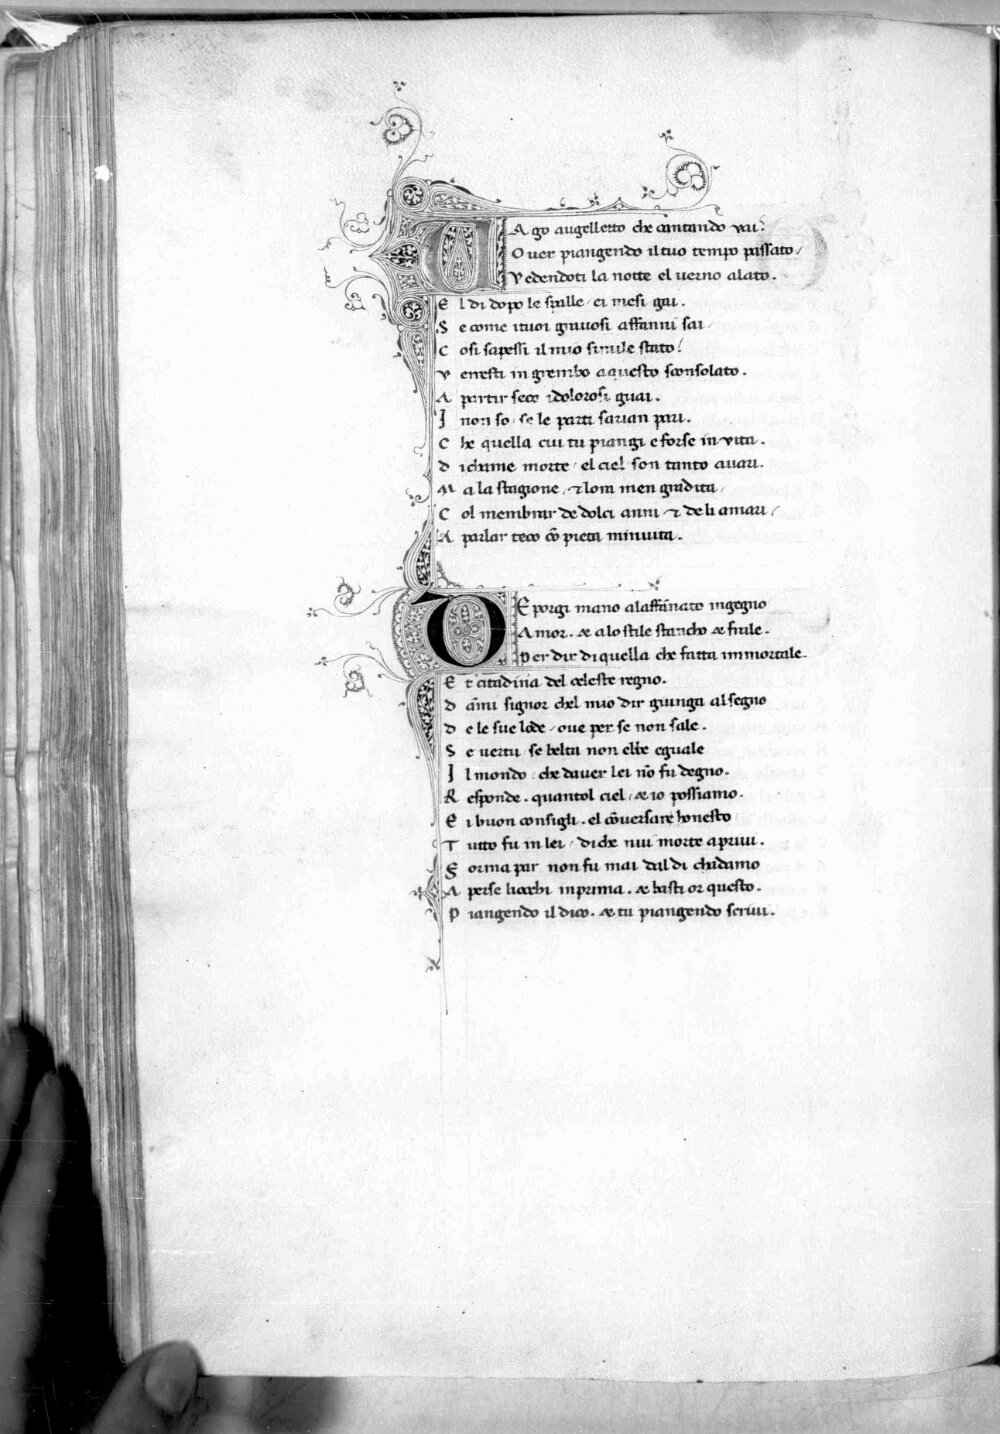 VAgo augelletto che cantando vai?
Over piangendo il tuo tempo passato/
Vedendoti la notte el verno alato.
E l di dopo le spalle/ ei mesi gai.
S e come ituoi gravosi affanni sai/
C osi sapessi il mio simile stato!
V eresti in grembo aquesto sconsolato.
A partir seco idolorosi guai.
I non so/ se le parti sarian pari.
C he quella cui tu piangi e forse in vita.
D ichame morte/ el ciel/ son tanto avari.
M a la stagione/ & lora men gradita/
C ol membrar de dolci anni & de li amari/
A parlar teco cõ pieta minvita.
DE porgi mano alaffãnato ingegno
Amor. & alo stile stancho & frale.
Per dir di quella che fatta immortale.
E t citadina del celeste regno.
D ãmi signor chel mio dir giunga al segno
D e le sue lode/ ove per se non sale.
S e vertu/ se belta non ebbe eguale
I l mondo/ che daver lei nõ fu degno.
R esponde. quantol ciel/ & io possiamo.
E i buon consigli. el cõversare honesto
T utto fu in lei/ di che nui morte a privi.
F orma par non fu mai dal di chadamo
A perse liocchi in prima. & basti or questo.
P iangendo il dico. & tu piangendo scrivi.